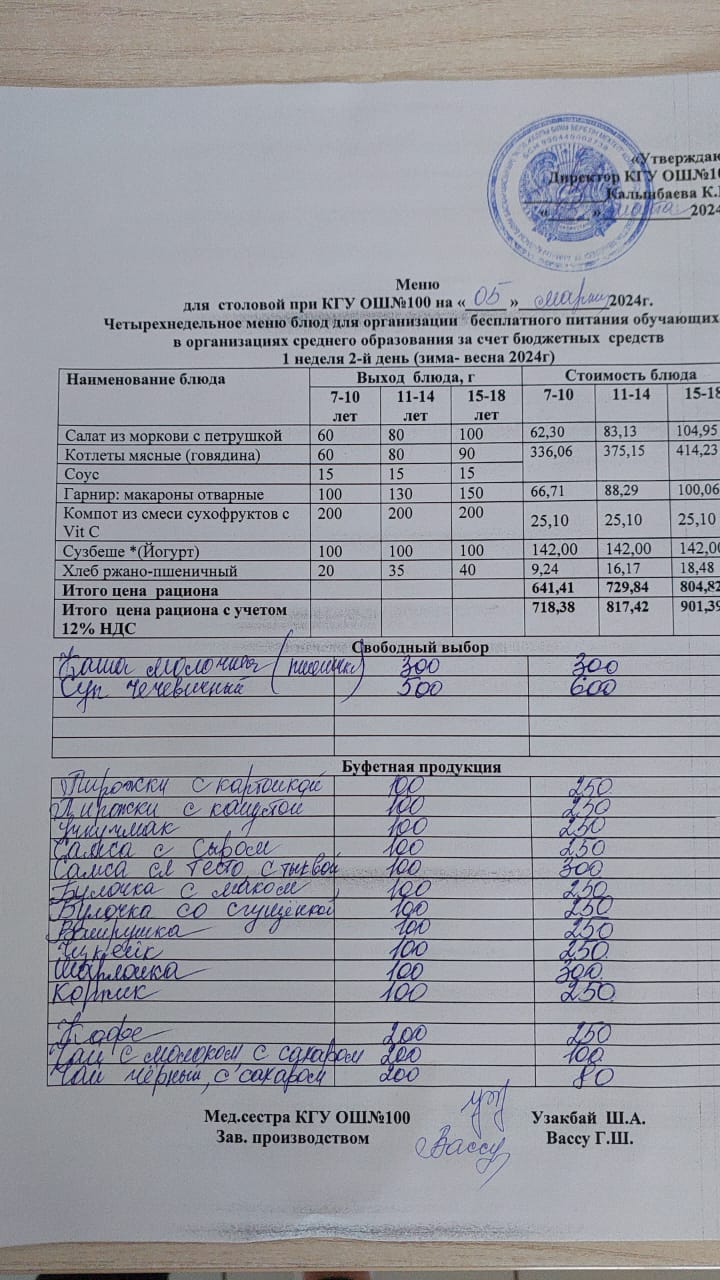 «Утверждаю
Директор КГУ ОШ№10
Калынбаева К.
« » марта 2024
Меню
для столовой при КГУ ОШ№100 на « 05 » марта 2024г.
Четырехнедельное меню блюд для организации бесплатного питания обучающих
в организациях среднего образования за счет бюджетных средств
1 неделя 2-й день (зима- весна 2024г)
Наименование блюда Выход блюда, г Стоимость блюда
7-10 лет 11-14 лет 15-18 лет 7-10 11-14 15-18
Салат из моркови с петрушкой 60 80 100 62,30 83,13 104,95
Котлеты мясные (говядина) 60 80 90 336,06 375,15 414,23
Соус 15 15 15
Гарнир: макароны отварные 100 130 150 66,71 88,29 100,06
Компот из смеси сухофруктов с 200 200 200 25,10 25,10 25,10
Vit C
Сузбеше *(Йогурт) 100 100 100 142,00 142,00 142,00
Хлеб ржано-пшеничный 20 35 40 9,24 16,17 18,48
Итого цена рациона 641,41 729,84 804,82
Итого цена рациона с учетом 718,38 817,42 901,39
12% НДС
Свободный выбор
Каша молочная 300 300
Суп чечевичный 500 600
Буфетная продукция
Пирожки с картошкой 100 250
Пирожки с капустой 100 250
Учпучмак 100 250
Самса с сыром 100 250
Самса сл тесто, с тыквой 100 300
Булочка с маком 100 250
Булочка со сгущёнкой 100 250
Ватрушка 100 250
100 250
Шарлотка 100 300
Коржик 100 250
Кофе 200 250
Чай с молоком с сахаром 200 100
Чай чёрный, с сахаром 200 80
Мед.сестра КГУ ОШ№100 Узакбай Ш.А.
Зав. производством Вассу Вассу Г.Ш.